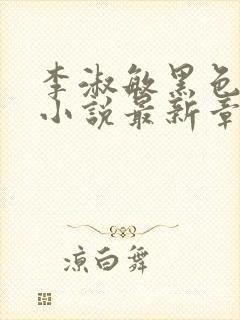 李淑敏黑色
小說最新章
凉白舞